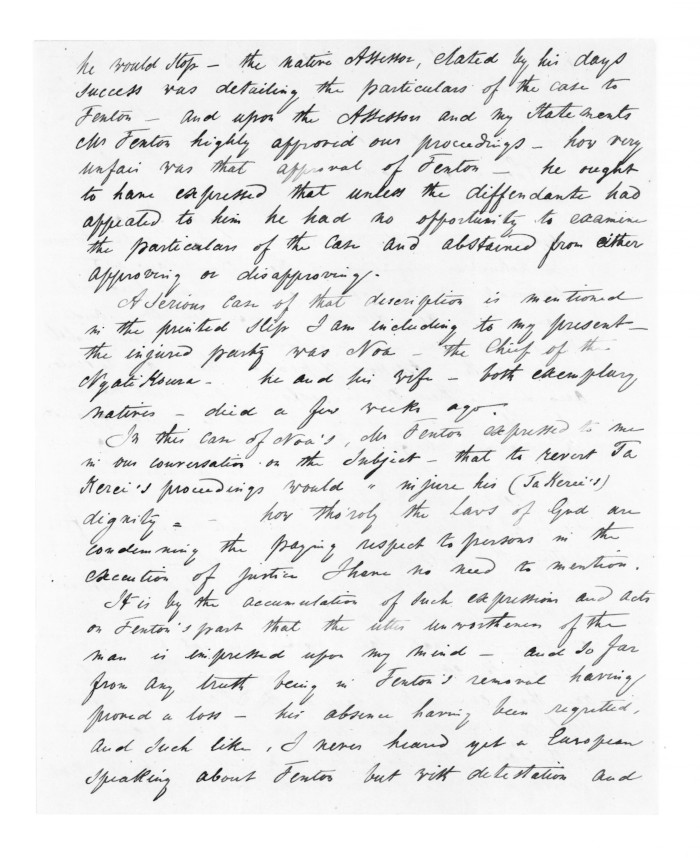 he would stop – the native Assessor, elated by his days
success was detailing the particulars of the case to
Fenton – and upon the Assessors and my statements
Mr Fenton highly approved our proceedings – how very
unfair was that approval of Fenton – he ought
to have expressed that unless the diffendante had
appeated to him he had no opportunity to examine
the particulars of the case and abstained from either
approving or disapproving.
A serious case of that description is mentioned
in the printed slip I am including to my present –
the injured party was Noa – the Chief of the
Ngati Koura – he and his wife – both exemplary
natives – died a few weeks ago.
In this case of Noa's, Mr Fenton expressed to me
in our conversation on the subject – that to revert Ta
Kerei's proceedings would " injure his (Ta Kerei's)
dignity " – how tho'roly the Laws of God are
condemning the paying respect to persons in the
execution of justice I have no need to mention.
It is by the accumulation of such expressions and acts
on Fenton's part that the utter unwortheness of the
man is impressed upon my mind – and so far
from any truth being in Fenton's removal having
proved a loss – his absence having been regretted,
and such like, I never heared yet a European
speaking about Fenton but with detestation and